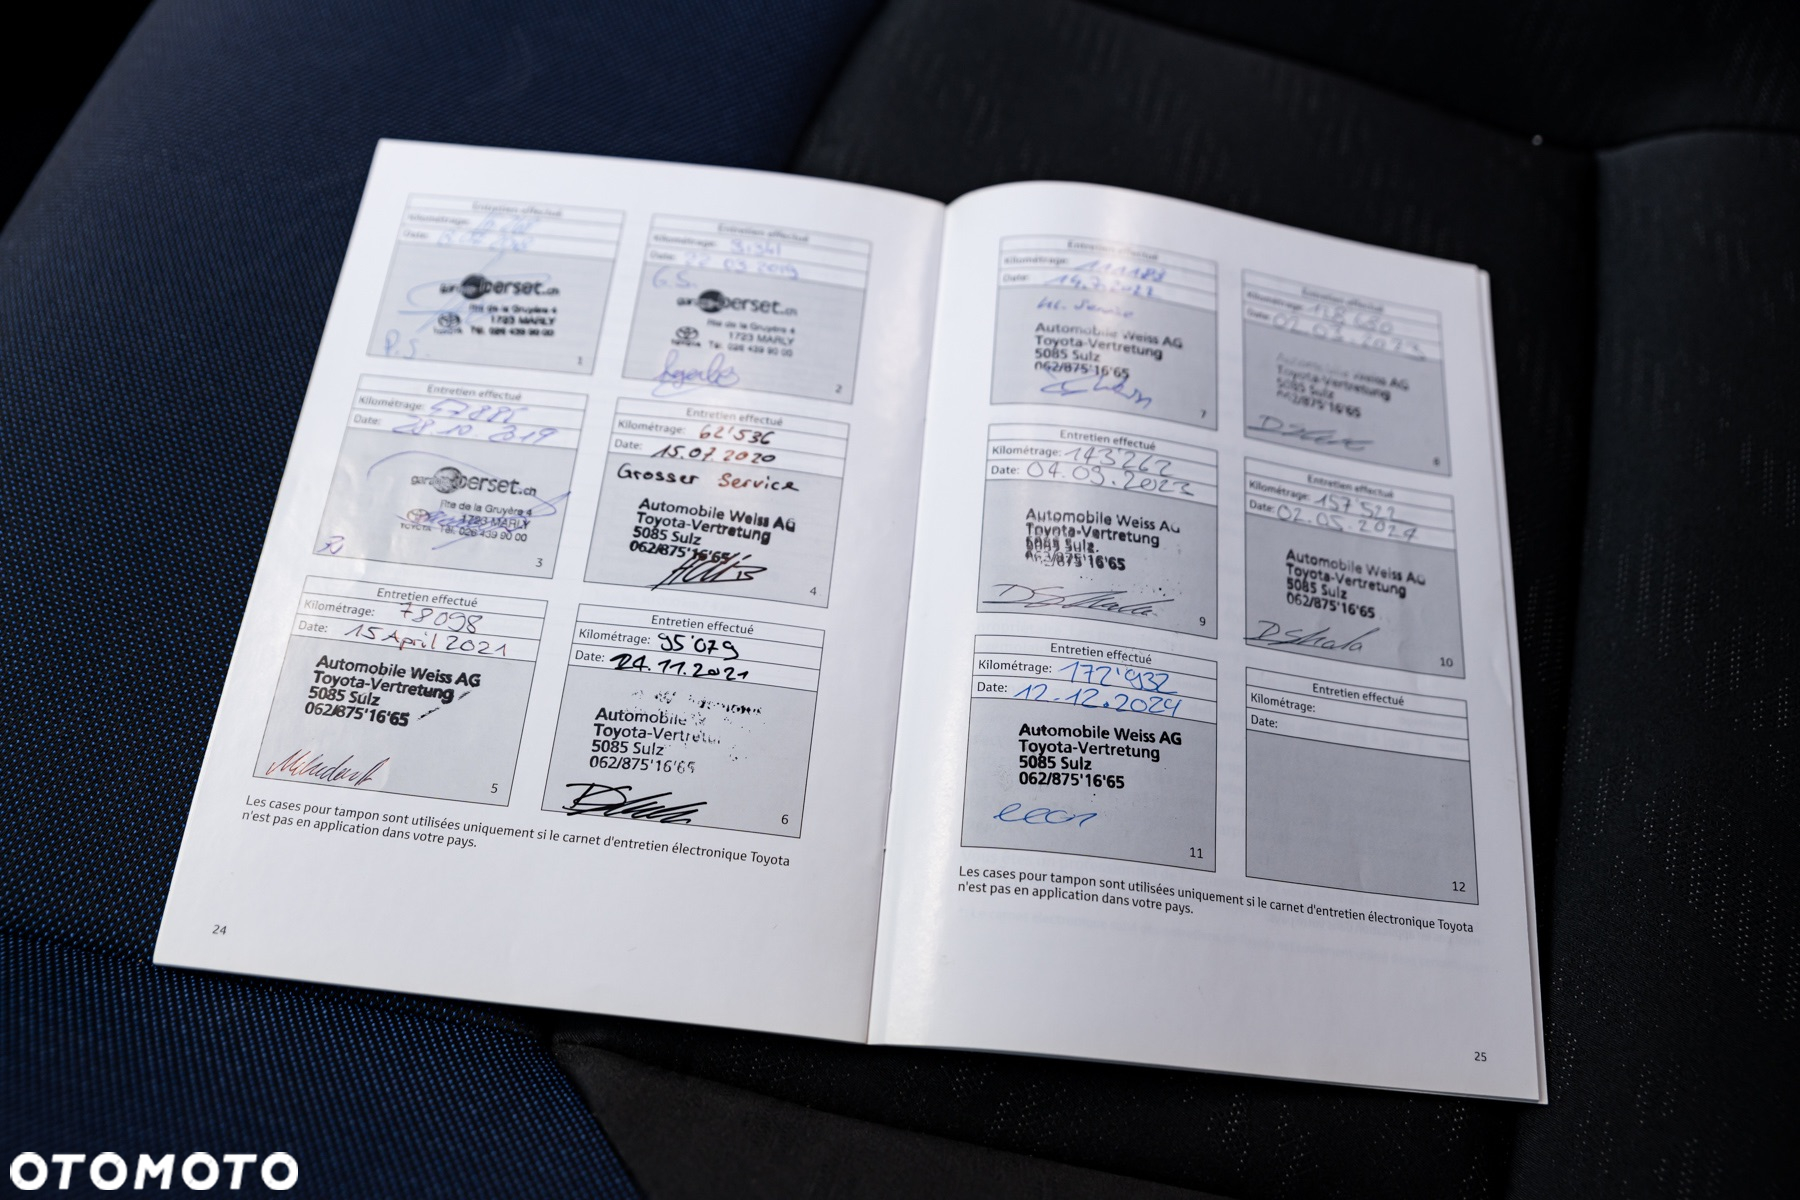 Entretien effectué
Kilométrage:
Date:
berset.ch
Rte de la Gruyère 4
1723 MARLY
TOYOTA Tél. 026 439 90 00
P.S.
1
Entretien effectué
Kilométrage:
Date: 22 03 2019
G.S.
berset.ch
Rte de la Gruyère 4
1723 MARLY
TOYOTA Tél. 026 439 90 00
2
Entretien effectué
Kilométrage:
Date: 28.10.2019
berset.ch
Rte de la Gruyère 4
1723 MARLY
TOYOTA Tél. 026 439 90 00
3
Entretien effectué
Kilométrage: 62'536
Date: 15.07.2020
Grosser Service
Automobile Weiss AG
Toyota-Vertretung
5085 Sulz
062/875'16'65
4
Entretien effectué
Kilométrage: 78098
Date: 15 April 2021
Automobile Weiss AG
Toyota-Vertretung
5085 Sulz
062/875'16'65
5
Entretien effectué
Kilométrage: 95'079
Date: 24.11.2021
Automobile
Toyota-Vertretu
5085 Sulz
062/875'16'65
6
Les cases pour tampon sont utilisées uniquement si le carnet d'entretien électronique Toyota
n'est pas en application dans votre pays.
24
Entretien effectué
Kilométrage:
Date:
Automobile Weiss AG
Toyota-Vertretung
5085 Sulz
062/875'16'65
7
Entretien effectué
Kilométrage:
Date: 02.03.2023
Automobile Weiss AG
Toyota-Vertretung
5085 Sulz
062/875'16'65
8
Entretien effectué
Kilométrage: 143'262
Date: 04.09.2023
Automobile Weiss AG
Toyota-Vertretung
5085 Sulz
062/875'16'65
9
Entretien effectué
Kilométrage: 157'522
Date: 02.05.2024
Automobile Weiss AG
Toyota-Vertretung
5085 Sulz
062/875'16'65
10
Entretien effectué
Kilométrage: 172'932
Date: 12.12.2024
Automobile Weiss AG
Toyota-Vertretung
5085 Sulz
062/875'16'65
11
Entretien effectué
Kilométrage:
Date:
12
Les cases pour tampon sont utilisées uniquement si le carnet d'entretien électronique Toyota
n'est pas en application dans votre pays.
25
OTOMOTO